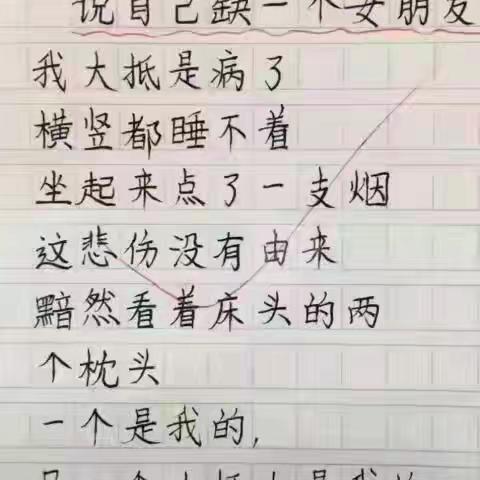 说自己缺一个女朋友
我大抵是病了
横竖都睡不着
坐起来点了一支烟
这悲伤没有由来
黯然看着床头的两
个枕头
一个是我的,